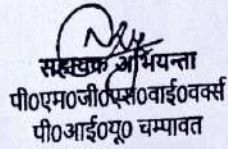 सहायक अभियन्ता
पी०एम०जी०एस०वाई०वर्क्स
पी०आई०यू० चम्पावत